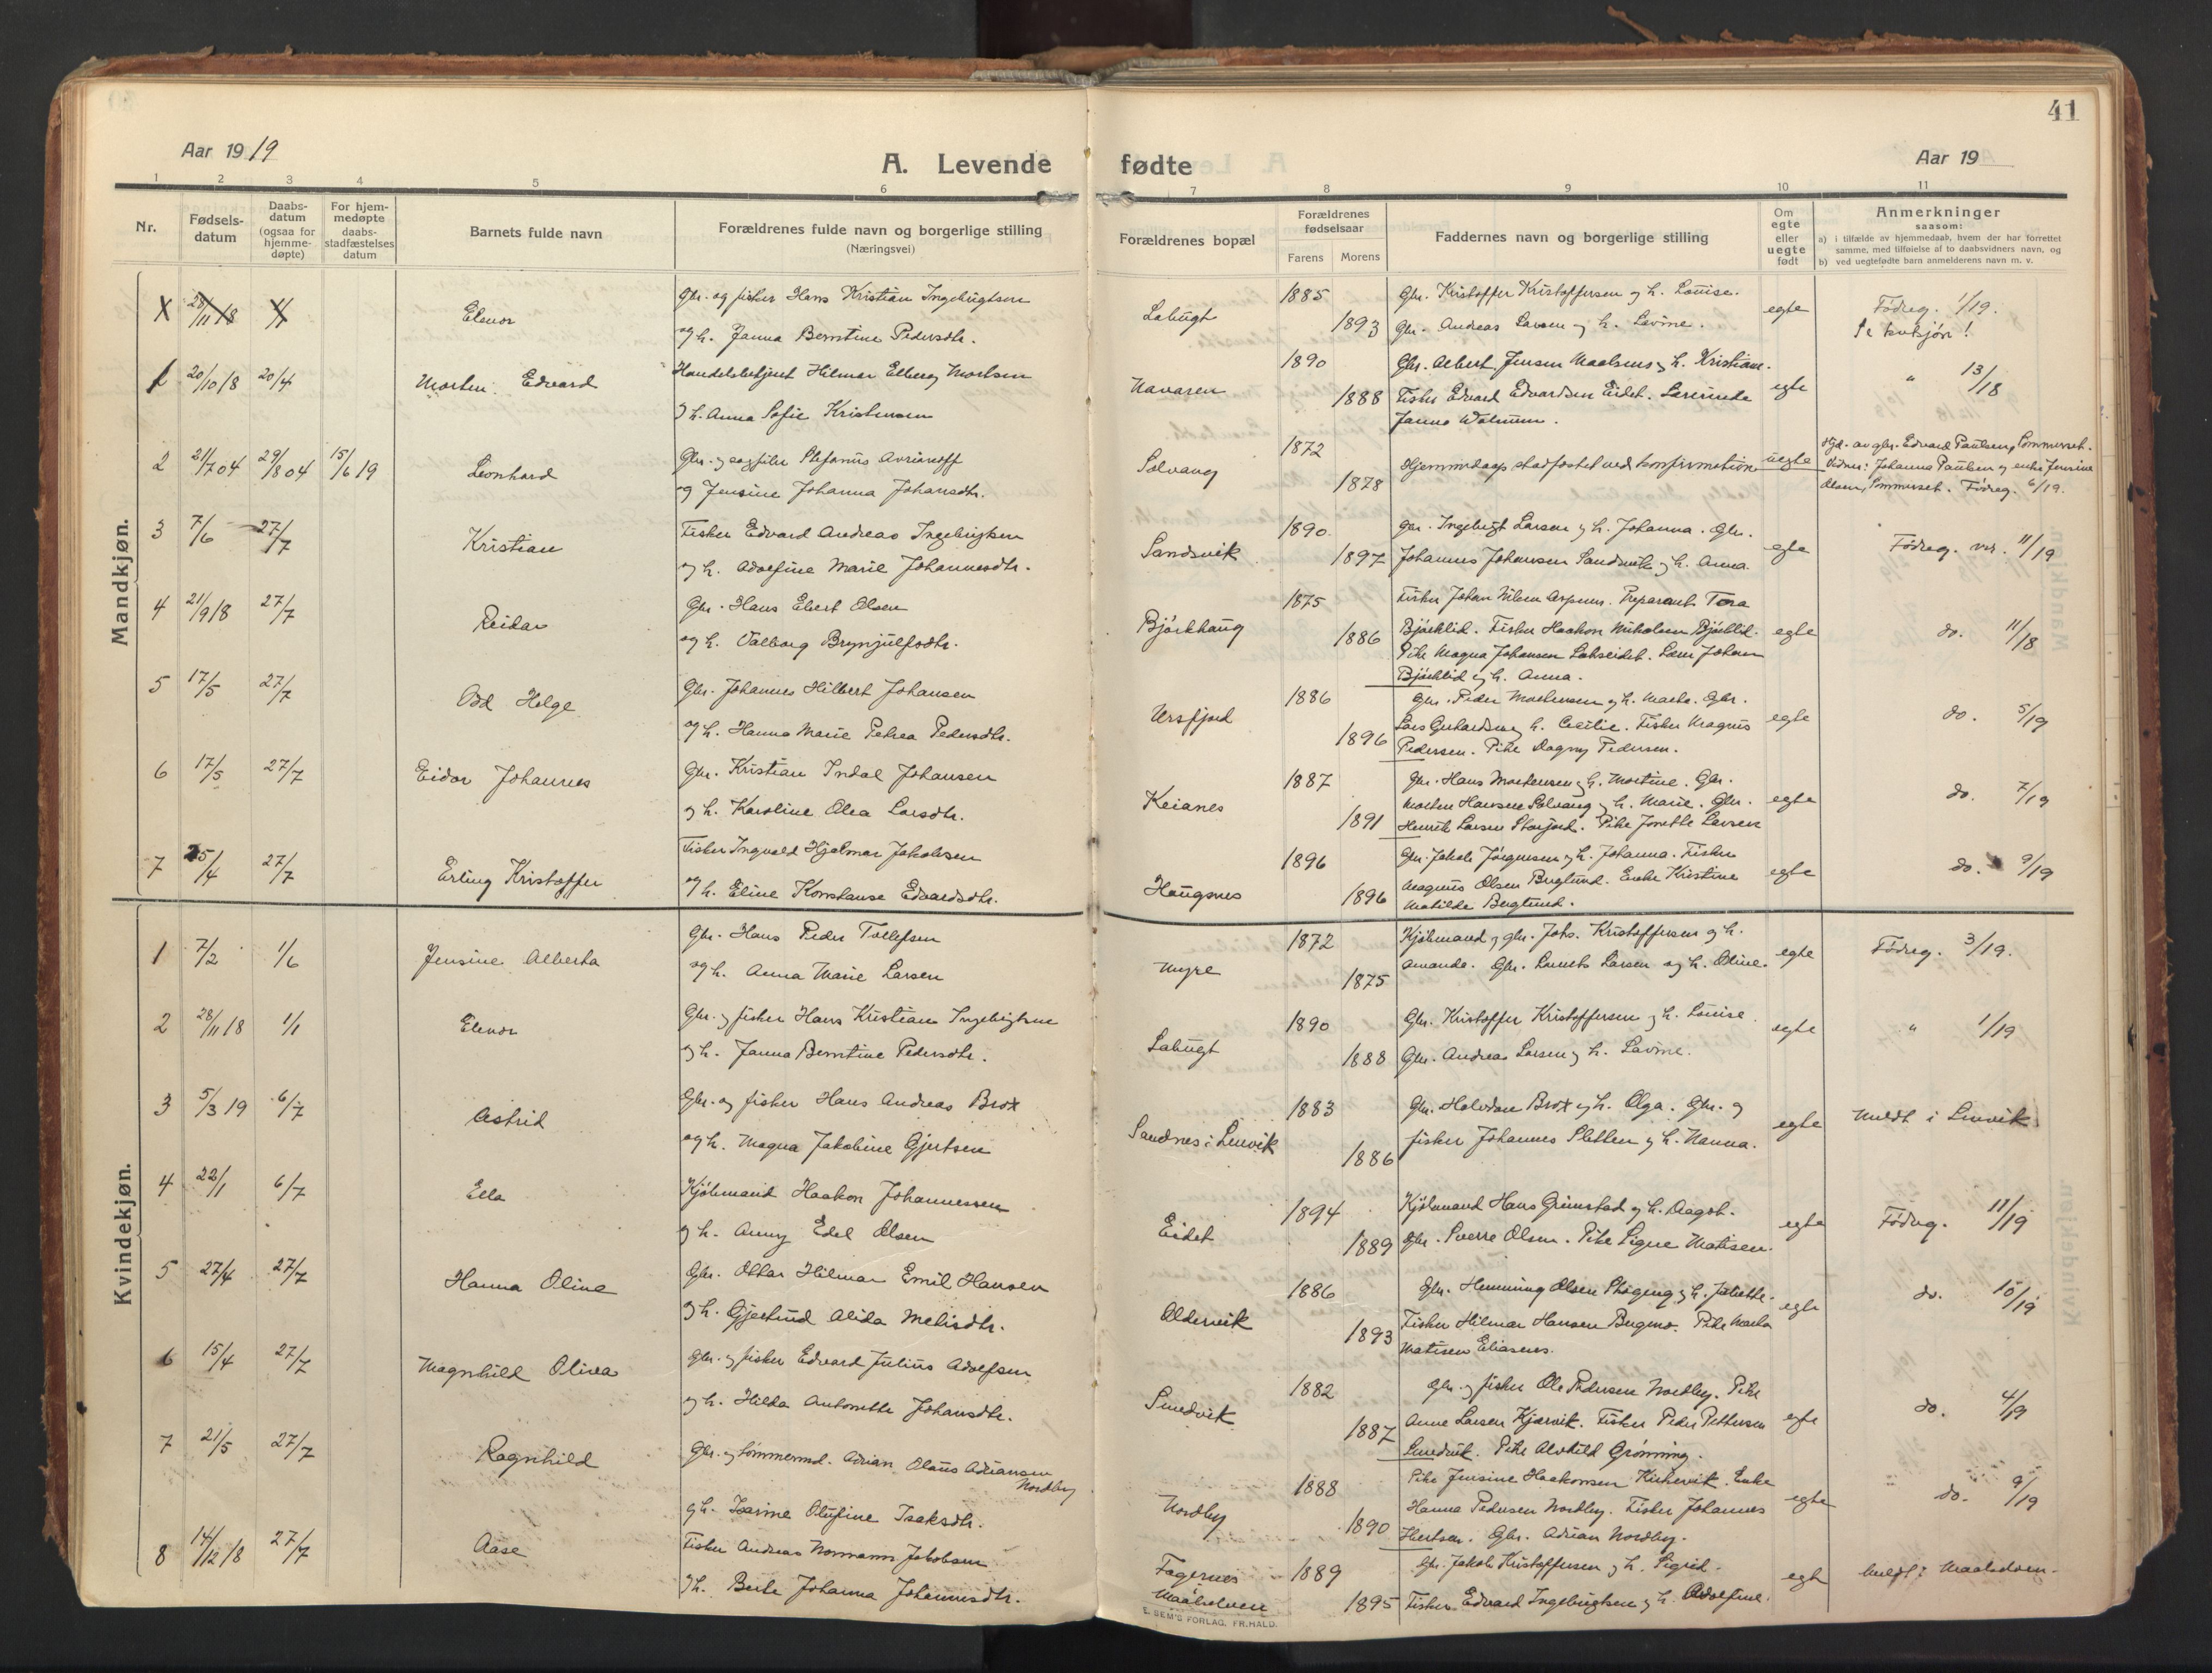 41
Aar 1919
A. Levende fødte
Aar 19
1 2 3 4 5 6 7 8 9 10 11
Nr.
Fødsels-
datum
Daabs-
datum
(ogsaa for
hjemme-
døpte)
For hjem-
medøpte
daabs-
stadfæstelses
datum
Barnets fulde navn
Forældrenes fulde navn og borgerlige stilling
(Næringsvei)
Forældrenes bopæl
Forældrenes
fødselsaar
Farens Morens
Faddernes navn og borgerlige stilling
Om
egte
eller
uegte
født
Anmerkninger
saasom:
a) i tilfælde av hjemmedaab, hvem der har forrettet
samme, med tilføielse af to daabsvidners navn, og
b) ved uegtefødte barn anmelderens navn m. v.
Mandkjøn.
28/11 18 1/1 Elenor
Gbr. og fisker Hans Kristian Ingebrigtsen
og h. Janna Berntine Pedersdtr.
Labugt 1885 1893
Gbr. Kristoffer Kristoffersen og h. Louise.
Gbr. Andreas Larsen og h. Lavine.
egte
Fødreg. 1/19.
Se kvkjøn!
1 20/10 18 20/4 Morten Edvard
Handelsbetjent Hilmar Elberg Mortsen
og h. Anna Sofie Kristensen
Navaren 1890 1888
Gbr. Albert Jensen Maalsnes og h. Kristiane.
Fisker Edvard Edvardsen Eidet. Lærerinde
Janna
egte
" 13/18
2 21/7 04 29/8 04 15/6 19 Leonhard
Gbr. og Stefanus
og Jensine Johanna Johansdtr.
Solvang 1872 1878
Hjemmedaap stadfæstet ved konfirmation
uegte
Hjd. av gbr. Edvard Paulsen, Sommerset.
Vidner: Johanna Paulsen og enke Jensine
Olsen, Sommerset. Fødreg. 6/19.
3 7/6 27/7 Kristian
Fisker Edvard Andreas Ingebrigtsen
og h. Adolfine Marie Johannesdtr.
Sandsvik 1890 1897
Gbr. Ingebrigt Larsen og h. Johanna. Gbr.
Johannes Johansen Sandsvik og h. Anna.
egte
Fødreg. nr. 11/19
4 21/9 18 27/7 Reidar
Gbr. Hans Ebert Olsen
og h. Valborg Brynjulfsdtr.
Bjørkhaug 1875 1886
Fisker Johan Nilsen Aspenes. Preparant Tora
Bjørklid. Fisker Haakon Nikolaisen Bjørklid.
Pike Magna Johansen Lakseidet. Johan
Bjørklid og h. Anna.
egte
do. 11/18
5 17/5 27/7 Odd Helge
Gbr. Johannes Hilbert Johansen
og h. Hanna Marie Petrea Pedersdtr.
Ursfjord 1886 1896
Gbr. Peder Mortensen og h. Marta. Gbr.
Lars Gerhardsen og h. Cecilie. Fisker Magnus
Pedersen. Pike Dagny Pedersen.
egte
do. 5/19
6 17/5 27/7 Eidar Johannes
Gbr. Kristian Indal Johansen
og h. Karoline Olea Larsdtr.
Keianes 1887 1891
Gbr. Hans Mortensen og h. Mortine. Gbr.
Morten Hansen Solvang og h. Marie. Gbr.
Henrik Larsen Storfjord. Pike Jonette Larsen
egte
do. 7/19
7 25/4 27/7 Erling Kristoffer
Fisker Ingvald Hjalmar Jakobsen
og h. Eline Konstanse Edvardsdtr.
Haugsnes 1896 1896
Gbr. Jakob Jørgensen og h. Johanna. Fisker
Magnus Olsen Berglund. Enke Kristine
Matilde Berglund.
egte
do. 9/19
Kvindekjøn.
1 7/2 1/6 Jensine Alberta
Gbr. Hans Peder Tollefsen
og h. Anna Marie Larsen
Myre 1872 1875
Kjøbmand og gbr. Johs. Kristoffersen og h.
Amanda. Gbr. Larsen og h. Oline.
egte
Fødreg. 3/19.
2 28/11 18 1/1 Elenor
Gbr. og fisker Hans Kristian Ingebrigtsen
og h. Janna Berntine Pedersdtr.
Labugt 1890 1888
Gbr. Kristoffer Kristoffersen og h. Louise.
Gbr. Andreas Larsen og h. Lavine.
egte
" 1/19
3 5/3 19 6/7 Astrid
Gbr. og fisker Hans Andreas Brox
og h. Magna Jakobine Gjertsen
Sandnes i Lenvik 1883 1886
Gbr. Halvdan Brox og h. Olga. Gbr. og
fisker Johannes Sletten og h. Hanna.
egte
Meldt i Lenvik
4 22/1 6/7 Ella
Kjøbmand Haakon Johannessen
og h. Anny Edel Olsen
Eidet 1894 1889
Kjøbmand Hans Grimstad og h. Dagot.
Gbr. Sverre Olsen. Pike Signe Matisen.
egte
Fødreg. 11/19
5 27/4 27/7 Hanna Oline
Gbr. Ottar Hilmar Emil Hansen
og h. Gjertrud Alida Metisdtr.
Aldervik 1886 1893
Gbr. Henning Olsen og h. Juliette.
Fisker Hilmar Hansen Bugnes. Pike Marta
Matisen Eliasnes.
egte
do. 10/19
6 15/4 27/7 Magnhild Olivea
Gbr. og fisker Edvard Julius Adolfsen
og h. Hilda Antonette Johansdtr.
Smedvik 1882 1887
Gbr. og fisker Ole Pedersen Nordby. Pike
Anne Larsen Kjærvik. Fisker Peder Pettersen
Smedvik. Pike Alvhild Grønning.
egte
do. 4/19
7 21/5 27/7 Ragnhild
Gbr. og tømmermd. Adrian Olaus Adriansen
Nordby
og h. Isarine Olufine Isaksdtr.
Nordby 1888 1890
Pike Jensine Haakonsen Kirkevik. Enke
Hanna Pedersen Nordby. Fisker Johannes
Gbr. Adrian Nordby.
egte
do. 9/19
8 14/12 18 27/7 Aase
Fisker Andreas Normann Jakobsen
og h. Berle Johanna Johannesdtr.
Fagernes
Maalselven 1889 1895
Gbr. Jakob Kristoffersen og h. Sigrid.
Fisker Edvard Ingebrigtsen og h. Adolfine.
egte
Meldt i Maalselven.
E. SEM'S FORLAG, FR.HALD.